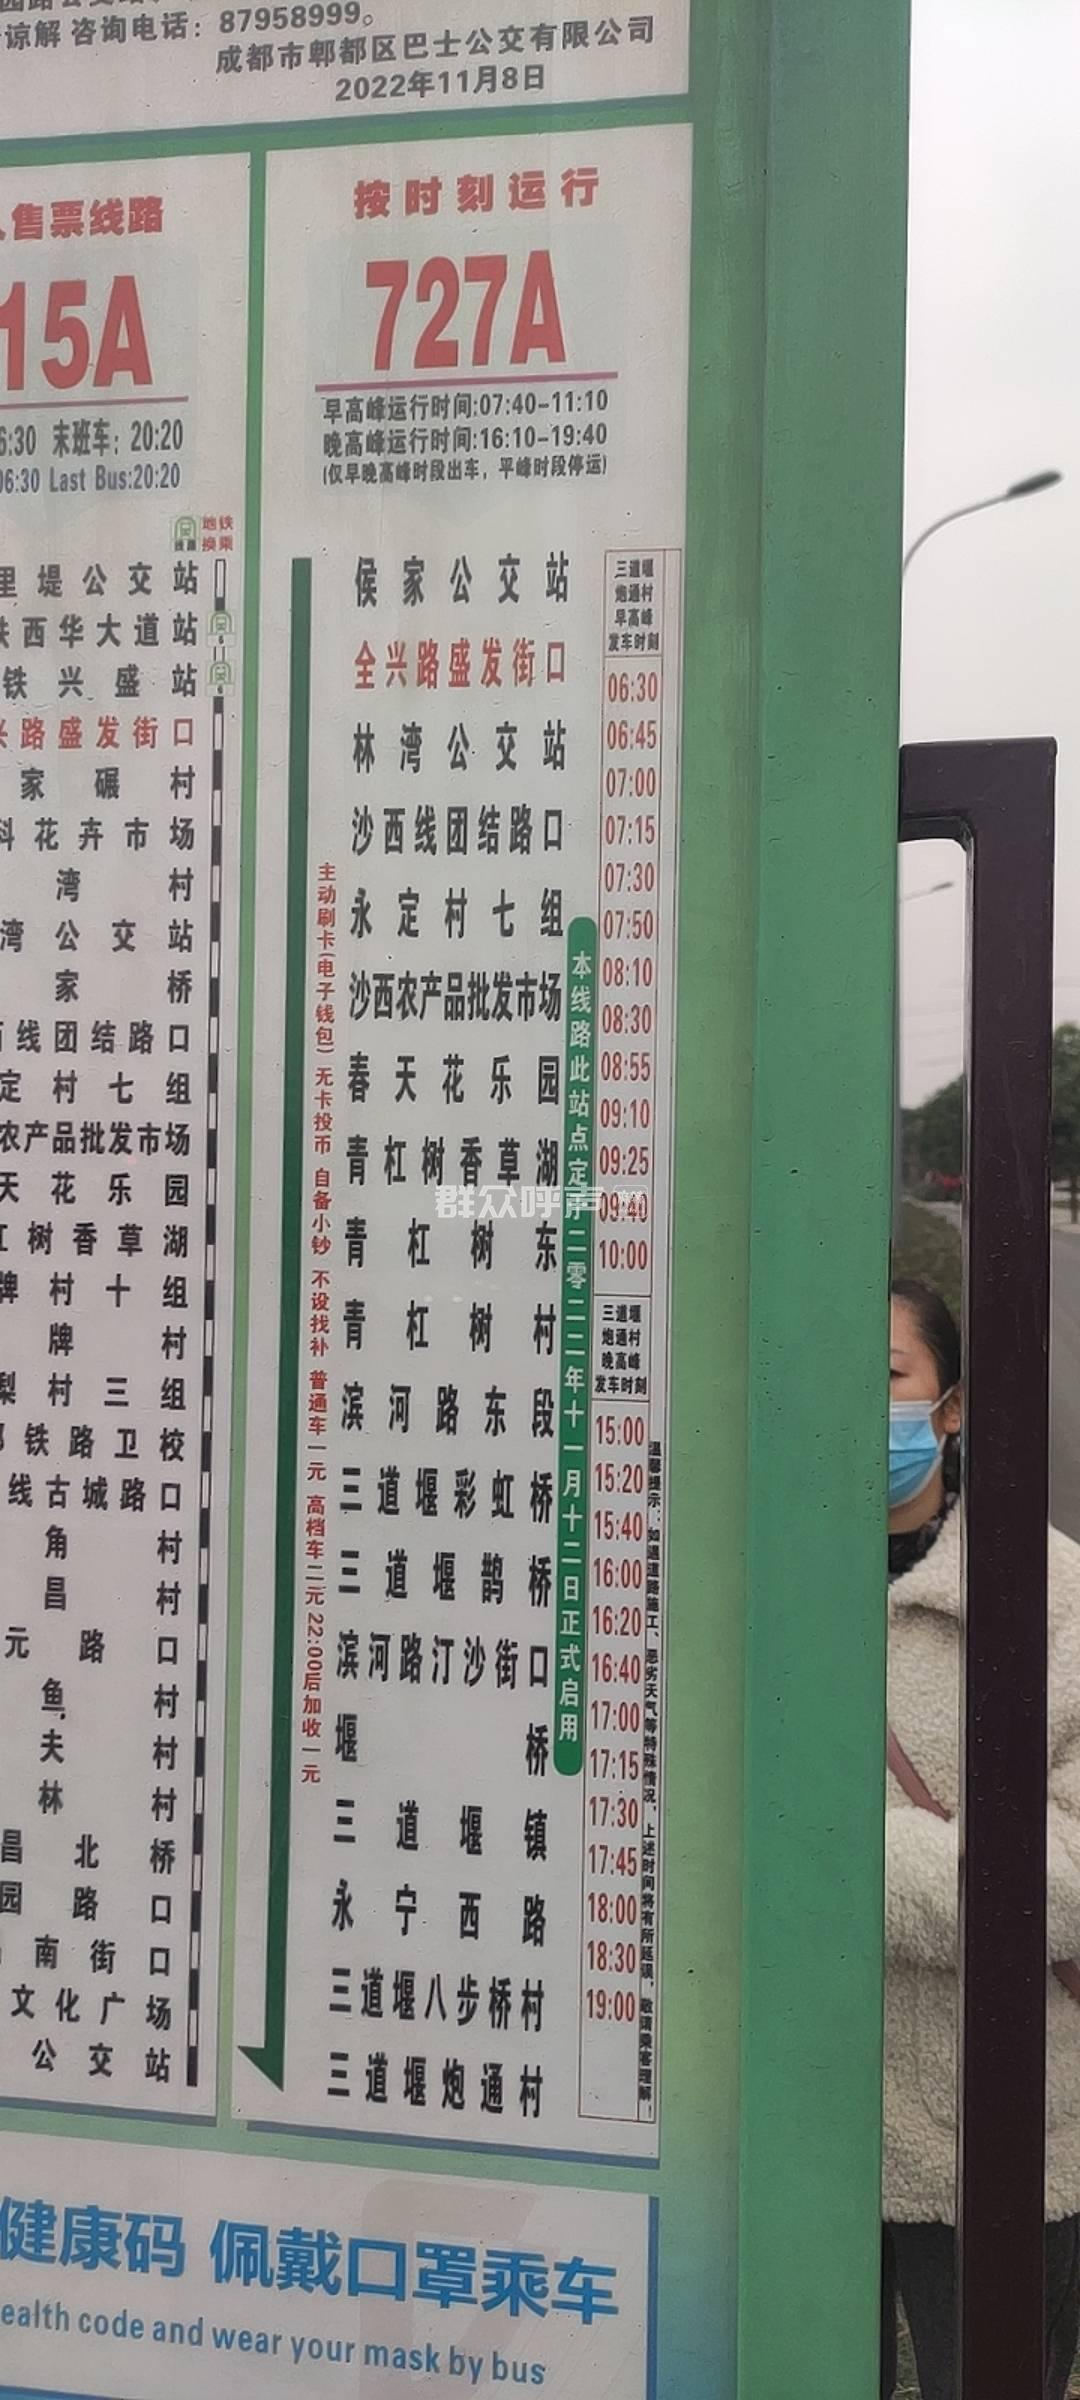 谅解 咨询电话：87958999。
成都市郫都区巴士公交有限公司
2022年11月8日
售票线路
15A
6:30 末班车：20:20
06:30 Last Bus:20:20
地铁
换乘
里堤公交站
铁西华大道站
铁兴盛站
兴路盛发街口
家碾村
科花卉市场
湾村
湾公交站
家桥
西线团结路口
定村七组
农产品批发市场
天花乐园
杠树香草湖
牌村十组
牌村
梨村三组
铁路卫校
线古城路口
角村
昌村
元路口
鱼村
夫村
林村
昌北桥
园路口
南街口
文化广场
公交站
按时刻运行
727A
早高峰运行时间:07:40-11:10
晚高峰运行时间:16:10-19:40
(仅早晚高峰时段出车，平峰时段停运)
侯家公交站
全兴路盛发街口
林湾公交站
沙西线团结路口
永定村七组
沙西农产品批发市场
春天花乐园
青杠树香草湖
青杠树东
青杠树村
滨河路东段
三道堰彩虹桥
三道堰鹊桥
滨河路汀沙街口
堰桥
三道堰镇
永宁西路
三道堰八步桥村
三道堰炮通村
主动刷卡(电子钱包) 无卡投币 自备小钞 不设找补 普通车一元 高档车二元 22:00后加收一元
本线路此站点定于二零二二年十一月十二日正式启用
三道堰
炮通村
早高峰
发车时刻
06:30
06:45
07:00
07:15
07:30
07:50
08:10
08:30
08:55
09:10
09:25
09:40
10:00
三道堰
炮通村
晚高峰
发车时刻
15:00
15:20
15:40
16:00
16:20
16:40
17:00
17:15
17:30
17:45
18:00
18:30
19:00
温馨提示：如遇道路施工、恶劣天气等特殊情况，上述时间将有所延误，敬请乘客理解！
群众呼声
健康码 佩戴口罩乘车
ealth code and wear your mask by bus